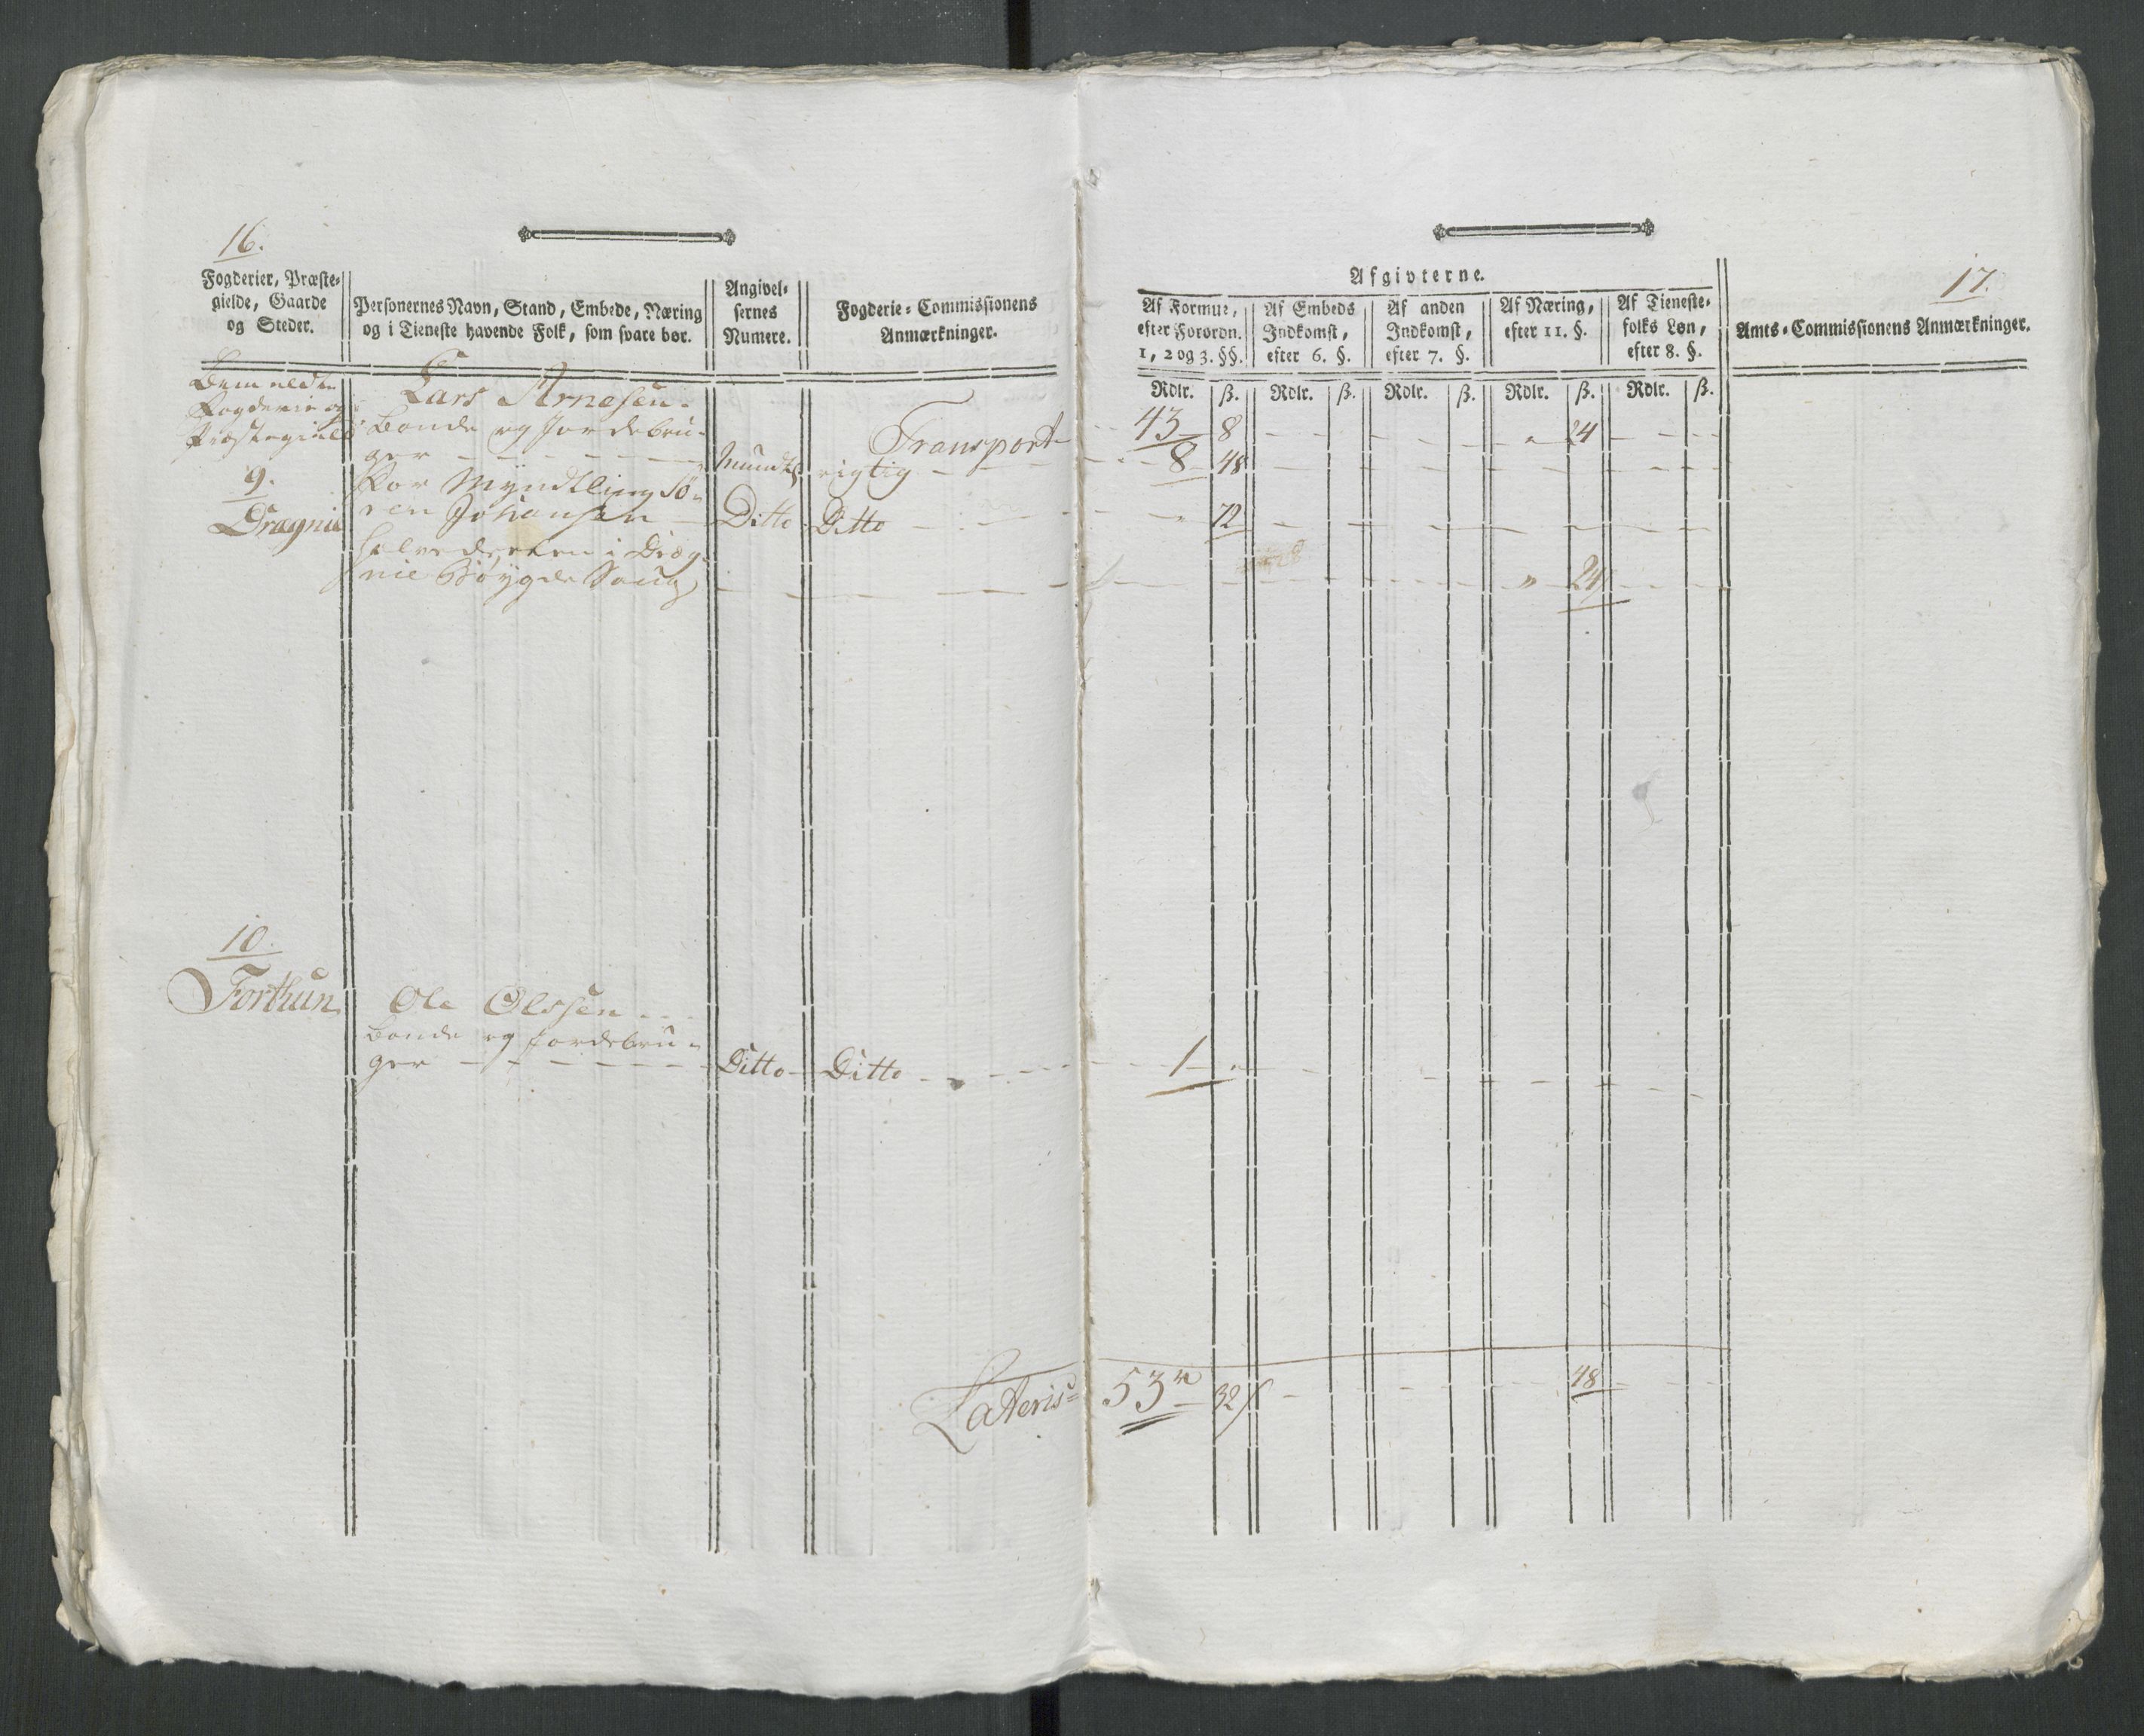 16.
Fogderier, Præste-
gielde, Gaarde
og Steder.
Personernes Navn, Stand, Embede, Næring
og i Tieneste havende Folk, som svare bør.
Angivel-
sernes
Numere.
Fogderie-Commissionens
Anmærkninger.
Bemeldte
Fogderie og
Præstegield
Lars Arnesen.
Bonde og Jordebru-
ger
Mundtl. rigtig
Transport
9.
Dragnie
For Myndtling Sø-
ren Johansen
Ditto Ditto
i Dræg-
nie Bøygde Saug
10.
Forthun
Ole Olssen
Bonde og Jordebru-
ger
Ditto Ditto
Lateris
17.
Afgivterne.
Af Formue,
efter Forordn.
1, 2 og 3. §§.
Af Embeds
Indkomst,
efter 6. §.
Af anden
Indkomst,
efter 7. §.
Af Næring,
efter 11. §.
Af Tieneste-
folks Løn,
efter 8. §.
Amts-Commissionens Anmærkninger.
Rdlr. ß. Rdlr. ß. Rdlr. ß. Rdlr. ß. Rdlr. ß.
43 8 " 24
8 48
" 72
" 24
1 "
53 32 48